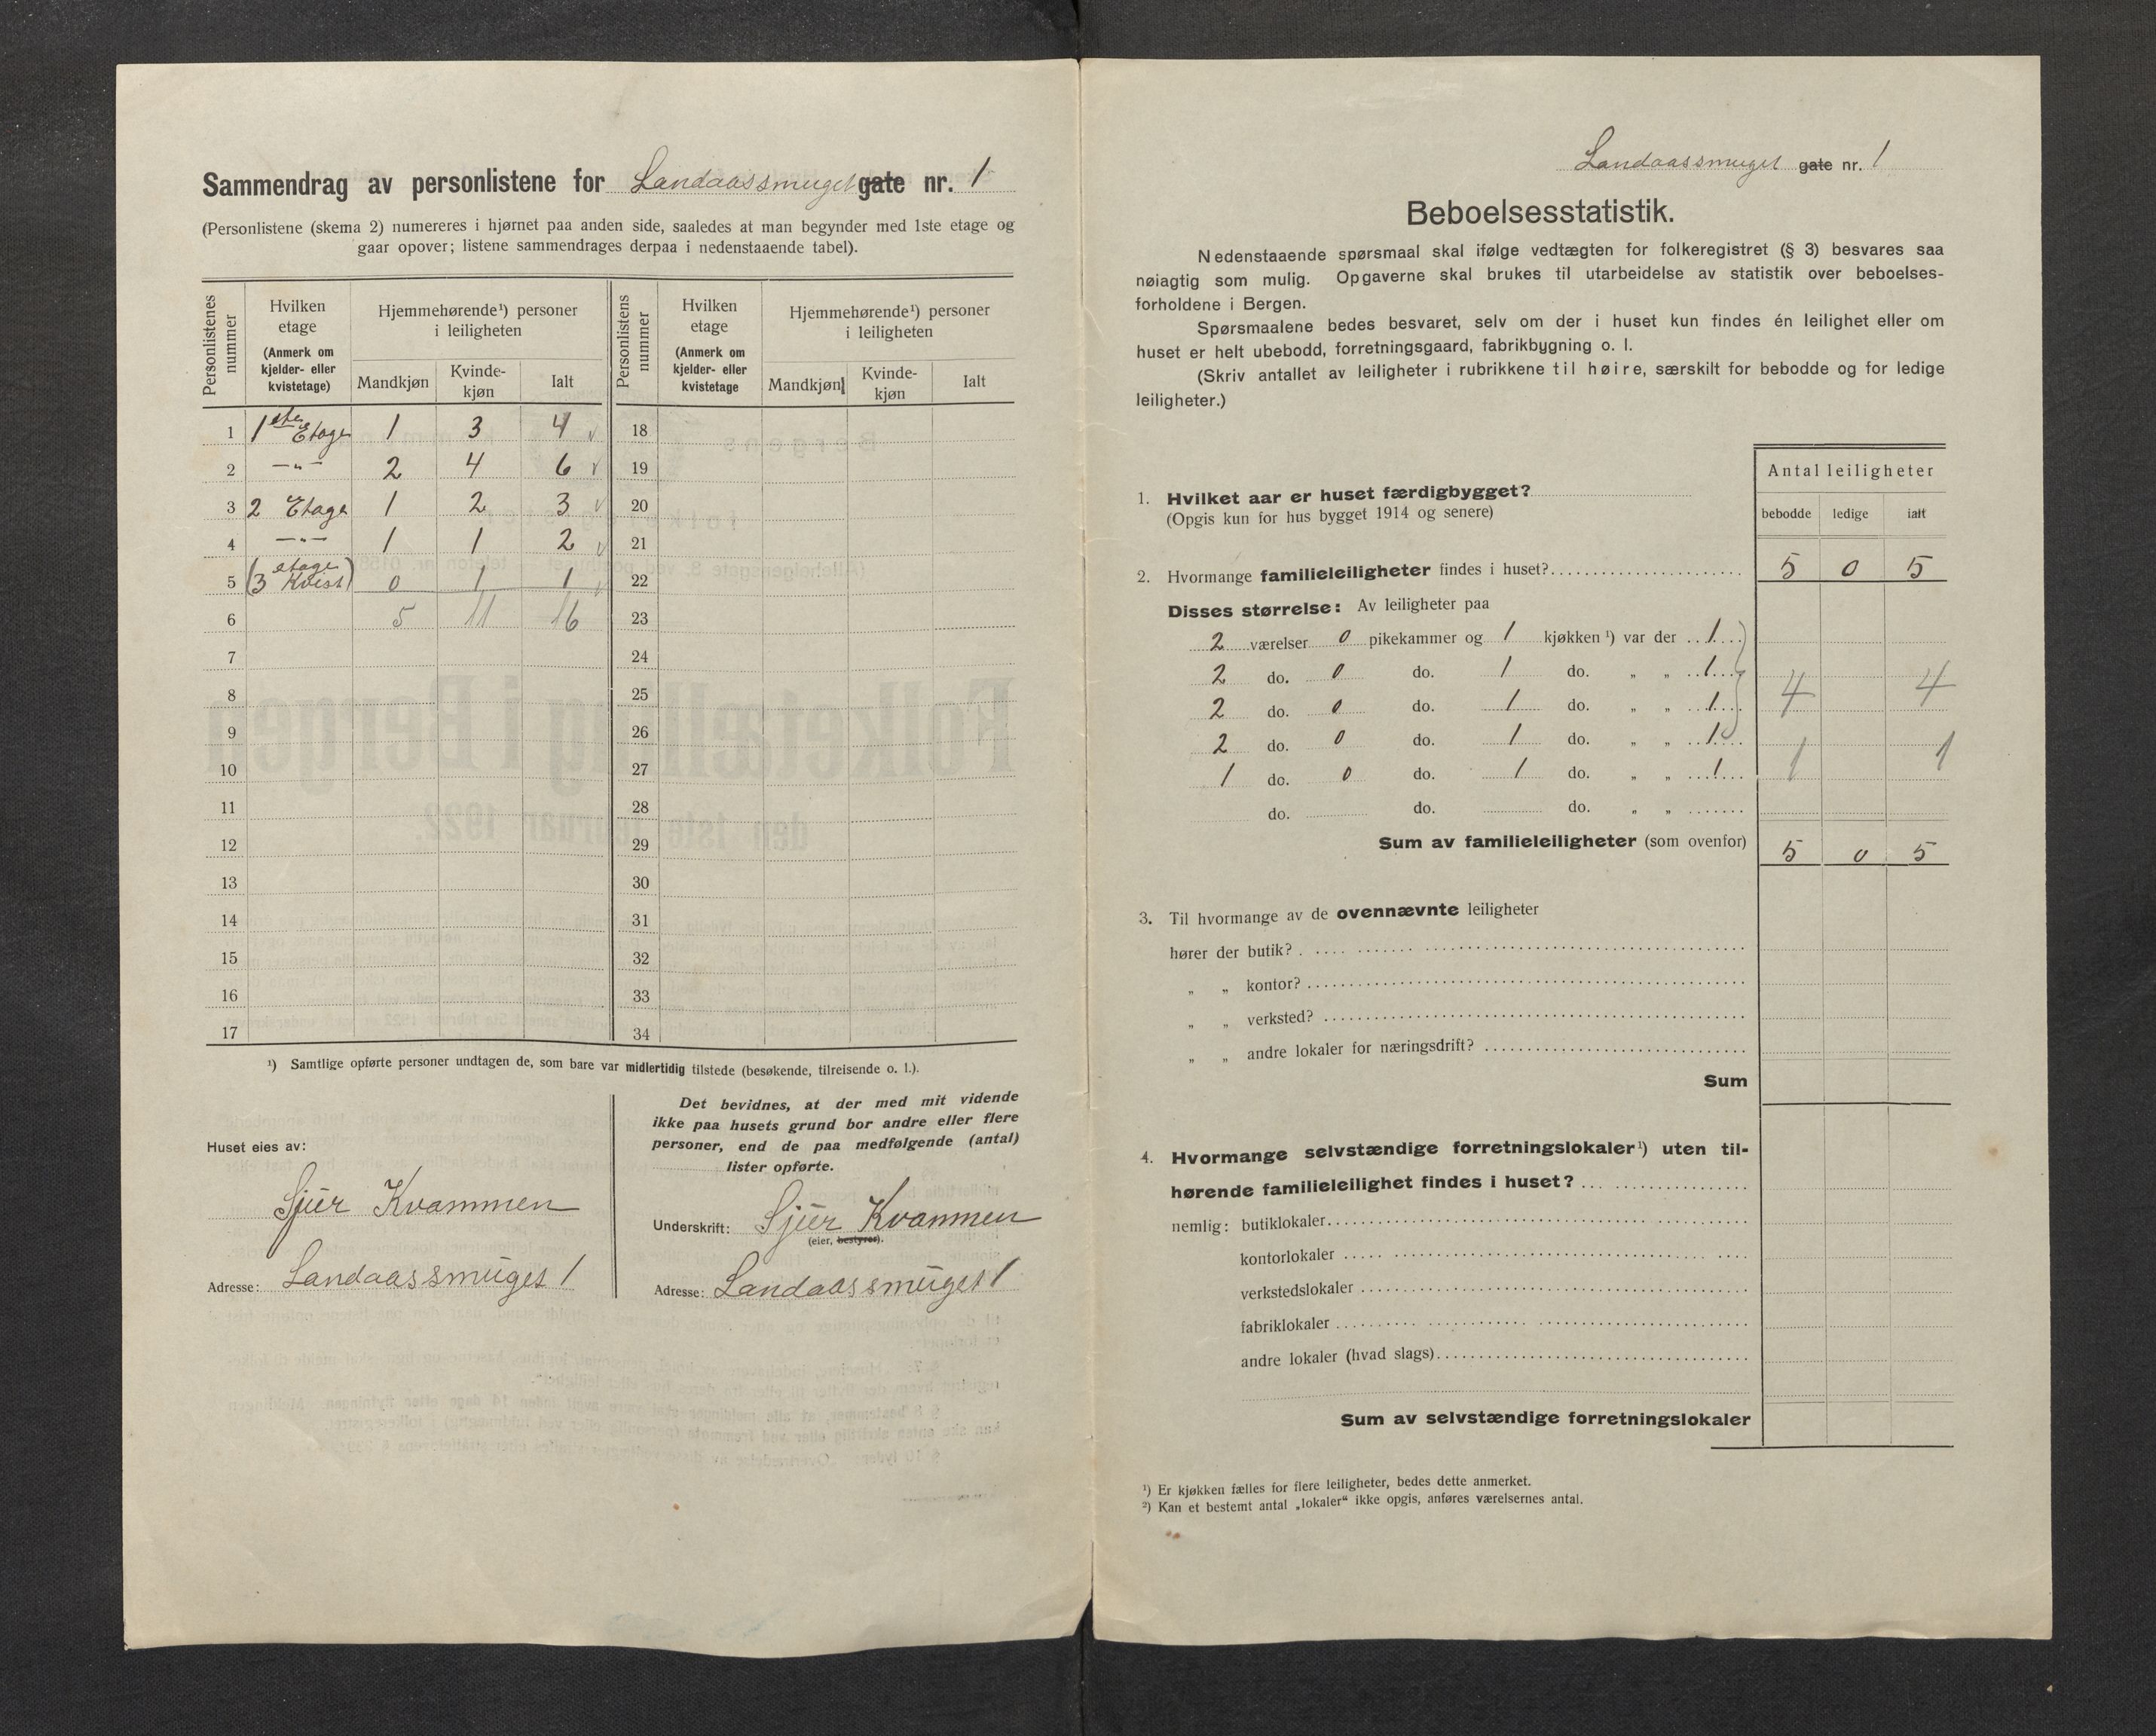 Sammendrag av personlistene for Landaassmuget gate nr. 1
(Personlistene (skema 2) numereres i hjørnet paa anden side, saaledes at man begynder med 1ste etage og
gaar opover; listene sammendrages derpaa i nedenstaaende tabel).
Personlistenes nummer
Hvilken etage (Anmerk om kjelder- eller kvistetage)
Hjemmehørende¹) personer i leiligheten
Mandkjøn Kvinde-kjøn Ialt
Personlistens nummer
Hvilken etage (Anmerk om kjelder- eller kvistetage
Hjemmehørende¹) personer i leiligheten
Mandkjøn Kvinde-kjøn Ialt
1 1ste Etage 1 3 4 18
2 —"— 2 4 6 19
3 2 Etage 1 2 3 20
4 —"— 1 1 2 21
5 (3 etage Kvist) 0 1 1 22
6 5 11 16 23
7 24
8 25
9 26
10 27
11 28
12 29
13 30
14 31
15 32
16 33
17 34
¹) Samtlige opførte personer undtagen de, som bare var midlertidig tilstede (besøkende, tilreisende o. l.).
Huset eies av:
Sjur Kvammen
Adresse: Landaassmuget 1
Det bevidnes, at der med mit vidende
ikke paa husets grund bor andre eller flere
personer, end de paa medfølgende (antal)
lister opførte.
Underskrift: Sjur Kvammen
(eier, bestyrer).
Adresse: Landaassmuget 1
Landaassmuget gate nr. 1
Beboelsesstatistik.
Nedenstaaende spørsmaal skal ifølge vedtægten for folkeregistret (§ 3) besvares saa
nøiagtig som mulig. Opgaverne skal brukes til utarbeidelse av statistik over beboelses-
forholdene i Bergen.
Spørsmaalene bedes besvaret, selv om der i huset kun findes én leilighet eller om
huset er helt ubebodd, forretningsgaard, fabrikbygning o. l.
(Skriv antallet av leiligheter i rubrikkene til høire, særskilt for bebodde og for ledige
leiligheter.)
Antal leiligheter
bebodde ledige ialt
1. Hvilket aar er huset færdigbygget?
(Opgis kun for hus bygget 1914 og senere)
2. Hvormange familieleiligheter findes i huset? 5 0 5
Disses størrelse: Av leiligheter paa
2 værelser 0 pikekammer og 1 kjøkken ¹) var der 1
2 do. 0 do. 1 do. „ „ 1
2 do. 0 do. 1 do. „ „ 1 4 4
2 do. 0 do. 1 do. „ „ 1
1 do. 0 do. 1 do. „ „ 1 1 1
do. do. do. „ „
Sum av familieleiligheter (som ovenfor) 5 0 5
3. Til hvormange av de ovennævnte leiligheter
hører der butik?
„ „ kontor?
„ „ verksted?
„ „ andre lokaler for næringsdrift?
Sum
4. Hvormange selvstændige forretningslokaler¹) uten til-
hørende familieleilighet findes i huset?
nemlig: butiklokaler
kontorlokaler
verkstedslokaler
fabriklokaler
andre lokaler (hvad slags)
Sum av selvstændige forretningslokaler
¹) Er kjøkken fælles for flere leiligheter, bedes dette anmerket.
²) Kan et bestemt antal „lokaler“ ikke opgis, anføres værelsernes antal.